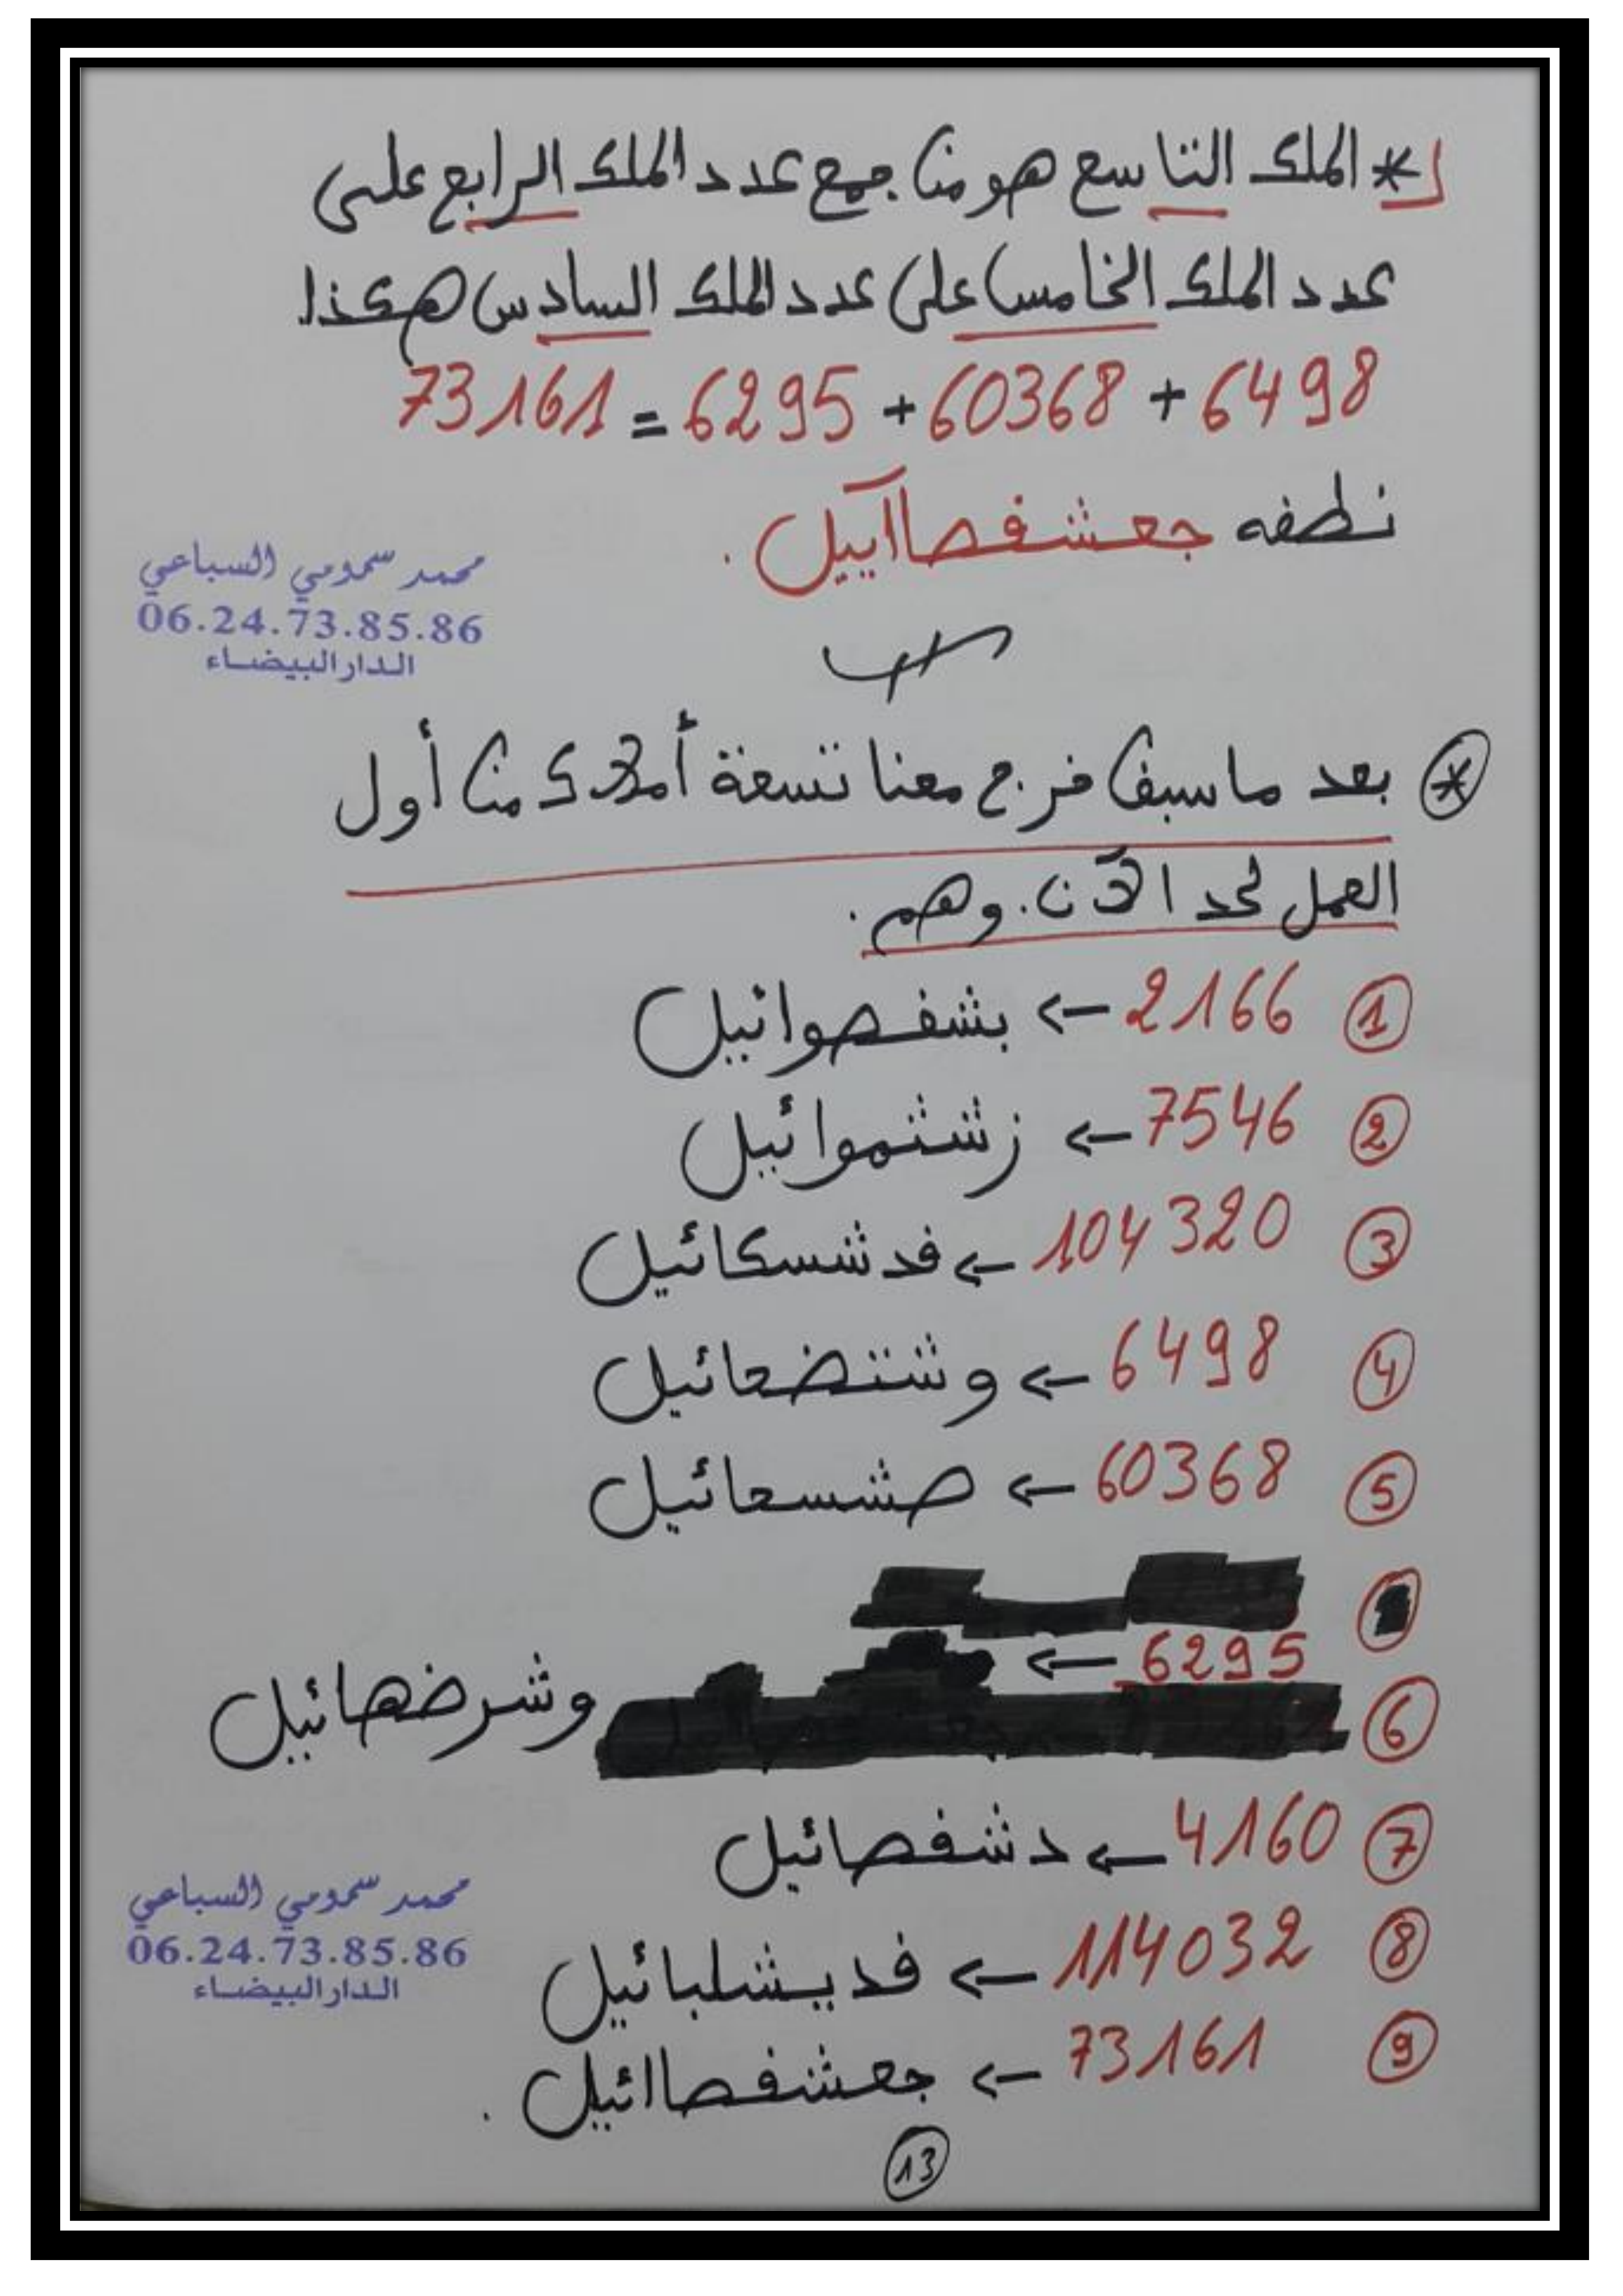 * الملك التاسع هو من جمع عدد الملك الرابع على
عدد الملك الخامس على عدد الملك السادس هكذا
6498 + 60368 + 6295 = 73161
نطقه جعشفصاآييل .
محمد سمومي السباعي
06.24.73.85.86
الدار البيضاء
* بعد ما سبق خرج معنا تسعة أملاك من أول
العمل لحد الآن. وهم .
1 2166 ← بشفصوائيل
2 7546 ← زشثموائيل
3 104320 ← فدشسكائيل
4 6498 ← وشتضعائيل
5 60368 ← صشسعائيل
6 6295 ← وشرضهائيل
7 4160 ← دشفصائيل
8 114032 ← فديشلبائيل
9 73161 ← جعشفصاائيل .
محمد سمومي السباعي
06.24.73.85.86
الدار البيضاء
13